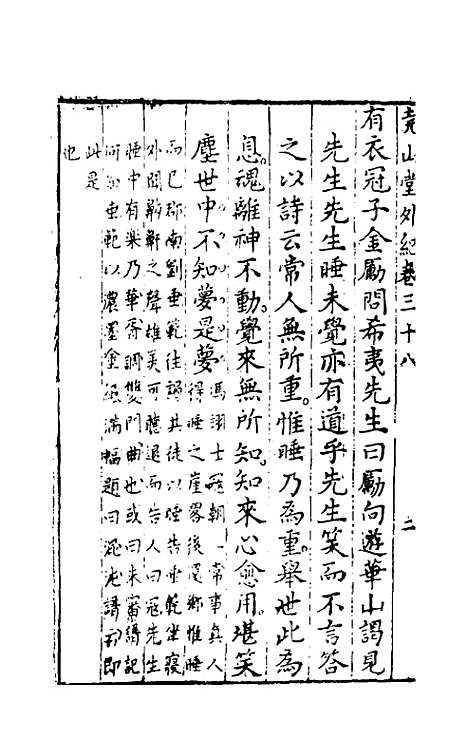 堯山堂外紀卷三十八　二
有衣冠子金勵問希夷先生曰勵向遊華山謁見
先生先生睡未覺亦有道乎先生笑而不言答
之以詩云常人無所重惟睡乃為重舉世此為
息魂離神不動覺來無所知知來心愈用堪笑
塵世中不知夢是夢
馮翊士寇朝一常事真人
得睡之崖畧後還鄉惟睡
而已郡南劉垂範往謁其徒以睡告垂範坐寢
外聞齁鼾之聲雄美可聽退而告人曰寇先生
睡中有樂乃華胥調雙門曲也或曰未審譜記
何如垂範以濃墨塗紙滿幅題曰混沌譜云即
此是
也